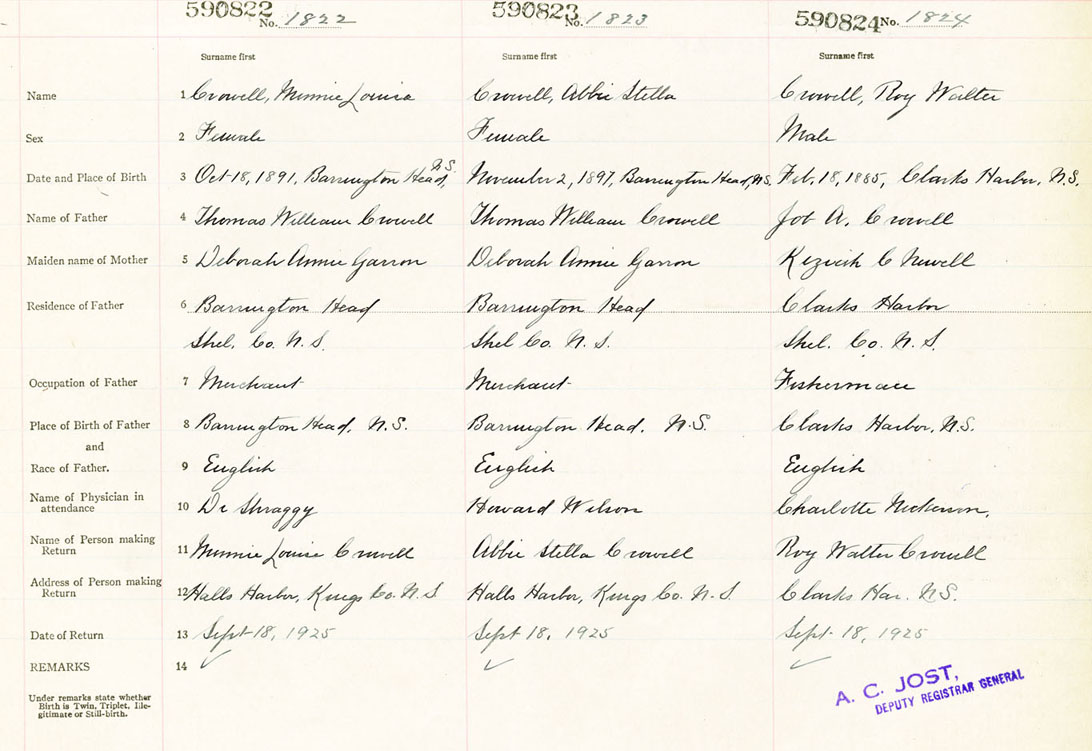 590822 No. 1822 590823 No. 1823 590824 No. 1824
Surname first Surname first Surname first
Name 1 Crowell, Minnie Louisa Crowell, Abbie Stella Crowell, Roy Walter
Sex 2 Female Female Male
Date and Place of Birth 3 Oct 18, 1891, Barrington Head, N.S. November 2, 1897, Barrington Head, N.S. Feb, 18, 1885, Clarks Harbor, N.S.
Name of Father 4 Thomas William Crowell Thomas William Crowell Job A. Crowell
Maiden name of Mother 5 Deborah Annie Garron Deborah Annie Garron Keziah C Newell
Residence of Father 6 Barrington Head Barrington Head Clarks Harbor
Shel. Co. N.S. Shel Co. N.S. Shel. Co. N.S.
Occupation of Father 7 Merchant Merchant Fisherman
Place of Birth of Father 8 Barrington Head, N.S. Barrington Head. N.S. Clarks Harbor, N.S.
and
Race of Father. 9 English English English
Name of Physician in
attendance 10 Dr Howard Wilson Charlotte Nickerson,
Name of Person making
Return 11 Minnie Louise Crowell Abbie Stella Crowell Roy Walter Crowell
Address of Person making
Return 12 Halls Harbor, Kings Co. N.S Halls Harbor, Kings Co. N.S. Clarks Har. N.S.
Date of Return 13 Sept 18, 1925 Sept 18, 1925 Sept. 18, 1925
REMARKS 14 ✓ ✓ ✓
Under remarks state whether
Birth is Twin, Triplet, Ille-
gitimate or Still-birth.
A. C. JOST,
DEPUTY REGISTRAR GENERAL